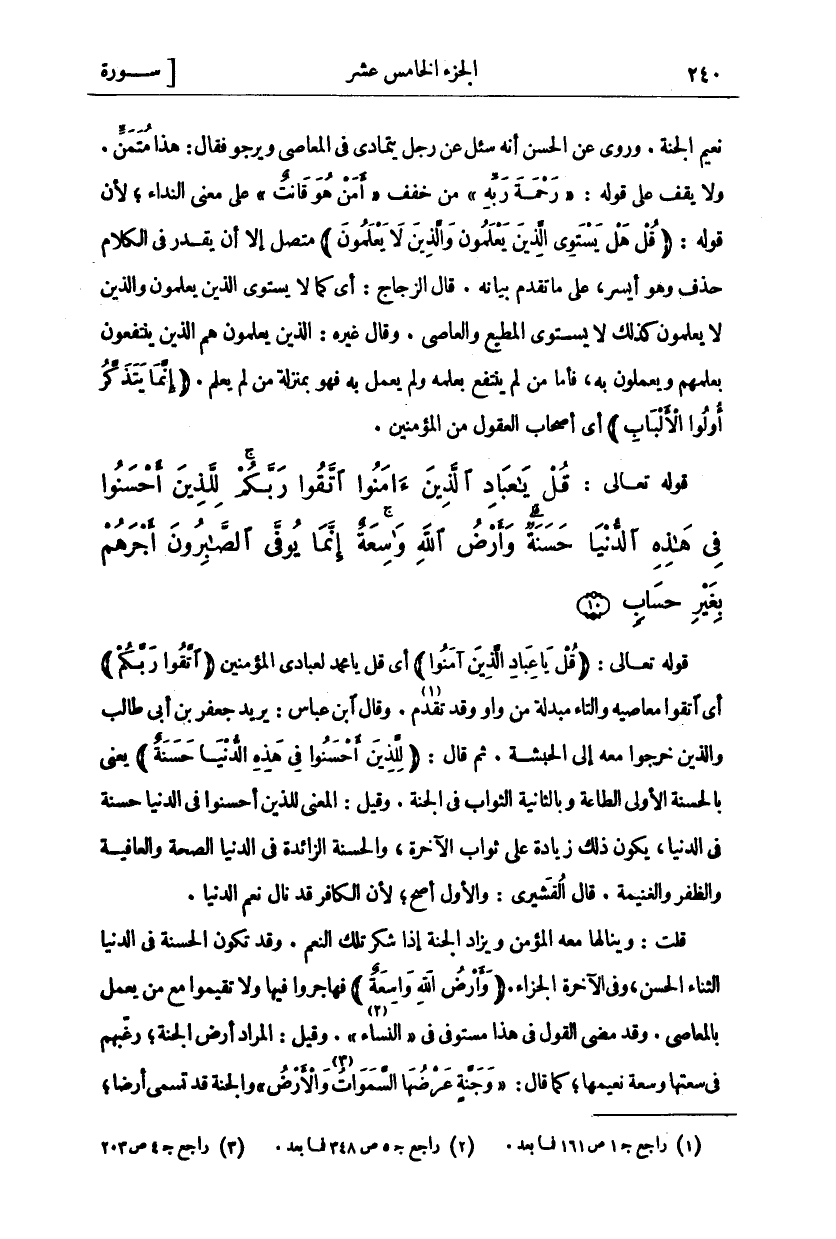 ٢٤٠ الجزء الخامس عشر [ ســورة
نعيم الجنة . وروى عن الحسن أنه سئل عن رجل يتمادى فى المعاصى ويرجو فقال: هذا مُتَمَنٍّ .
ولا يقف على قوله : « رَحْمَةَ رَبِّهِ » من خفف « أَمَنْ هُوَ قَانِتٌ » على معنى النداء ؛ لأن
قوله : ﴿ قُلْ هَلْ يَسْتَوِى الَّذِينَ يَعْلَمُونَ وَالَّذِينَ لَا يَعْلَمُونَ ﴾ متصل إلا أن يقــدر فى الكلام
حذف وهو أيسر، على ماتقدم بيانه . قال الزجاج : أى كما لا يستوى الذين يعلمون والذين
لا يعلمون كذلك لا يســتوى المطيع والعاصى . وقال غيره : الذين يعلمون هم الذين ينتفعون
بعلمهم ويعملون به، فأما من لم ينتفع بعلمه ولم يعمل به فهو بمنزلة من لم يعلم . ﴿ إِنَّمَا يَتَذَكَّرُ
أُولُوا الْأَلْبَابِ ﴾ أى أصحاب العقول من المؤمنين .
قوله تعــالى : قُلْ يَـٰعِبَادِ ٱلَّذِينَ ءَامَنُوا ٱتَّقُوا رَبَّكُمْ ۚ لِلَّذِينَ أَحْسَنُوا
فِى هَـٰذِهِ ٱلدُّنْيَا حَسَنَةٌ ۗ وَأَرْضُ ٱللَّهِ وَٰسِعَةٌ ۗ إِنَّمَا يُوَفَّى ٱلصَّـٰبِرُونَ أَجْرَهُمْ
بِغَيْرِ حِسَابٍ ⑩
قوله تعــالى : ﴿ قُلْ يَا عِبَادِ الَّذِينَ آمَنُوا ﴾ أى قل يا محمد لعبادى المؤمنين ﴿ ٱتَّقُوا رَبَّكُمْ ﴾
أى ٱتقوا معاصيه والتاء مبدلة من واو وقد تقدّم (١) . وقال ٱبن عباس : يريد جعفر بن أبى طالب
والذين خرجوا معه إلى الحبشــة . ثم قال : ﴿ لِلَّذِينَ أَحْسَنُوا فِى هَذِهِ الدُّنْيَــا حَسَنَةٌ ﴾ يعنى
بالحسنة الأولى الطاعة وبالثانية الثواب فى الجنة . وقيل : المعنى للذين أحسنوا فى الدنيا حسنة
فى الدنيا، يكون ذلك زيادة على ثواب الآخرة ، والحسنة الزائدة فى الدنيا الصحة والعافيــة
والظفر والغنيمة . قال القُشيرى : والأول أصح؛ لأن الكافر قد نال نعم الدنيا .
قلت : وينالها معه المؤمن ويزاد الجنة إذا شكر تلك النعم . وقد تكون الحسنة فى الدنيا
الثناء الحسن، وفى الآخرة الجزاء. ﴿ وَأَرْضُ اللهِ وَاسِعَةٌ ﴾ فهاجروا فيها ولا تقيموا مع من يعمل
بالمعاصى . وقد مضى القول فى هذا مستوفى فى « النساء » (٢) . وقيل : المراد أرض الجنة ؛ رغّبهم
فى سعتها وسعة نعيمها؛ كما قال : « وَجَنَّةٍ عَرْضُهَا السَّمَوَاتُ وَالْأَرْضُ » (٣) والجنة قد تسمى أرضا ؛
(١) راجع جـ ١ ص ١٦١ فما بعد . (٢) راجع جـ ٥ ص ٣٤٨ فما بعد . (٣) راجع جـ ٤ ص ٢٠٣